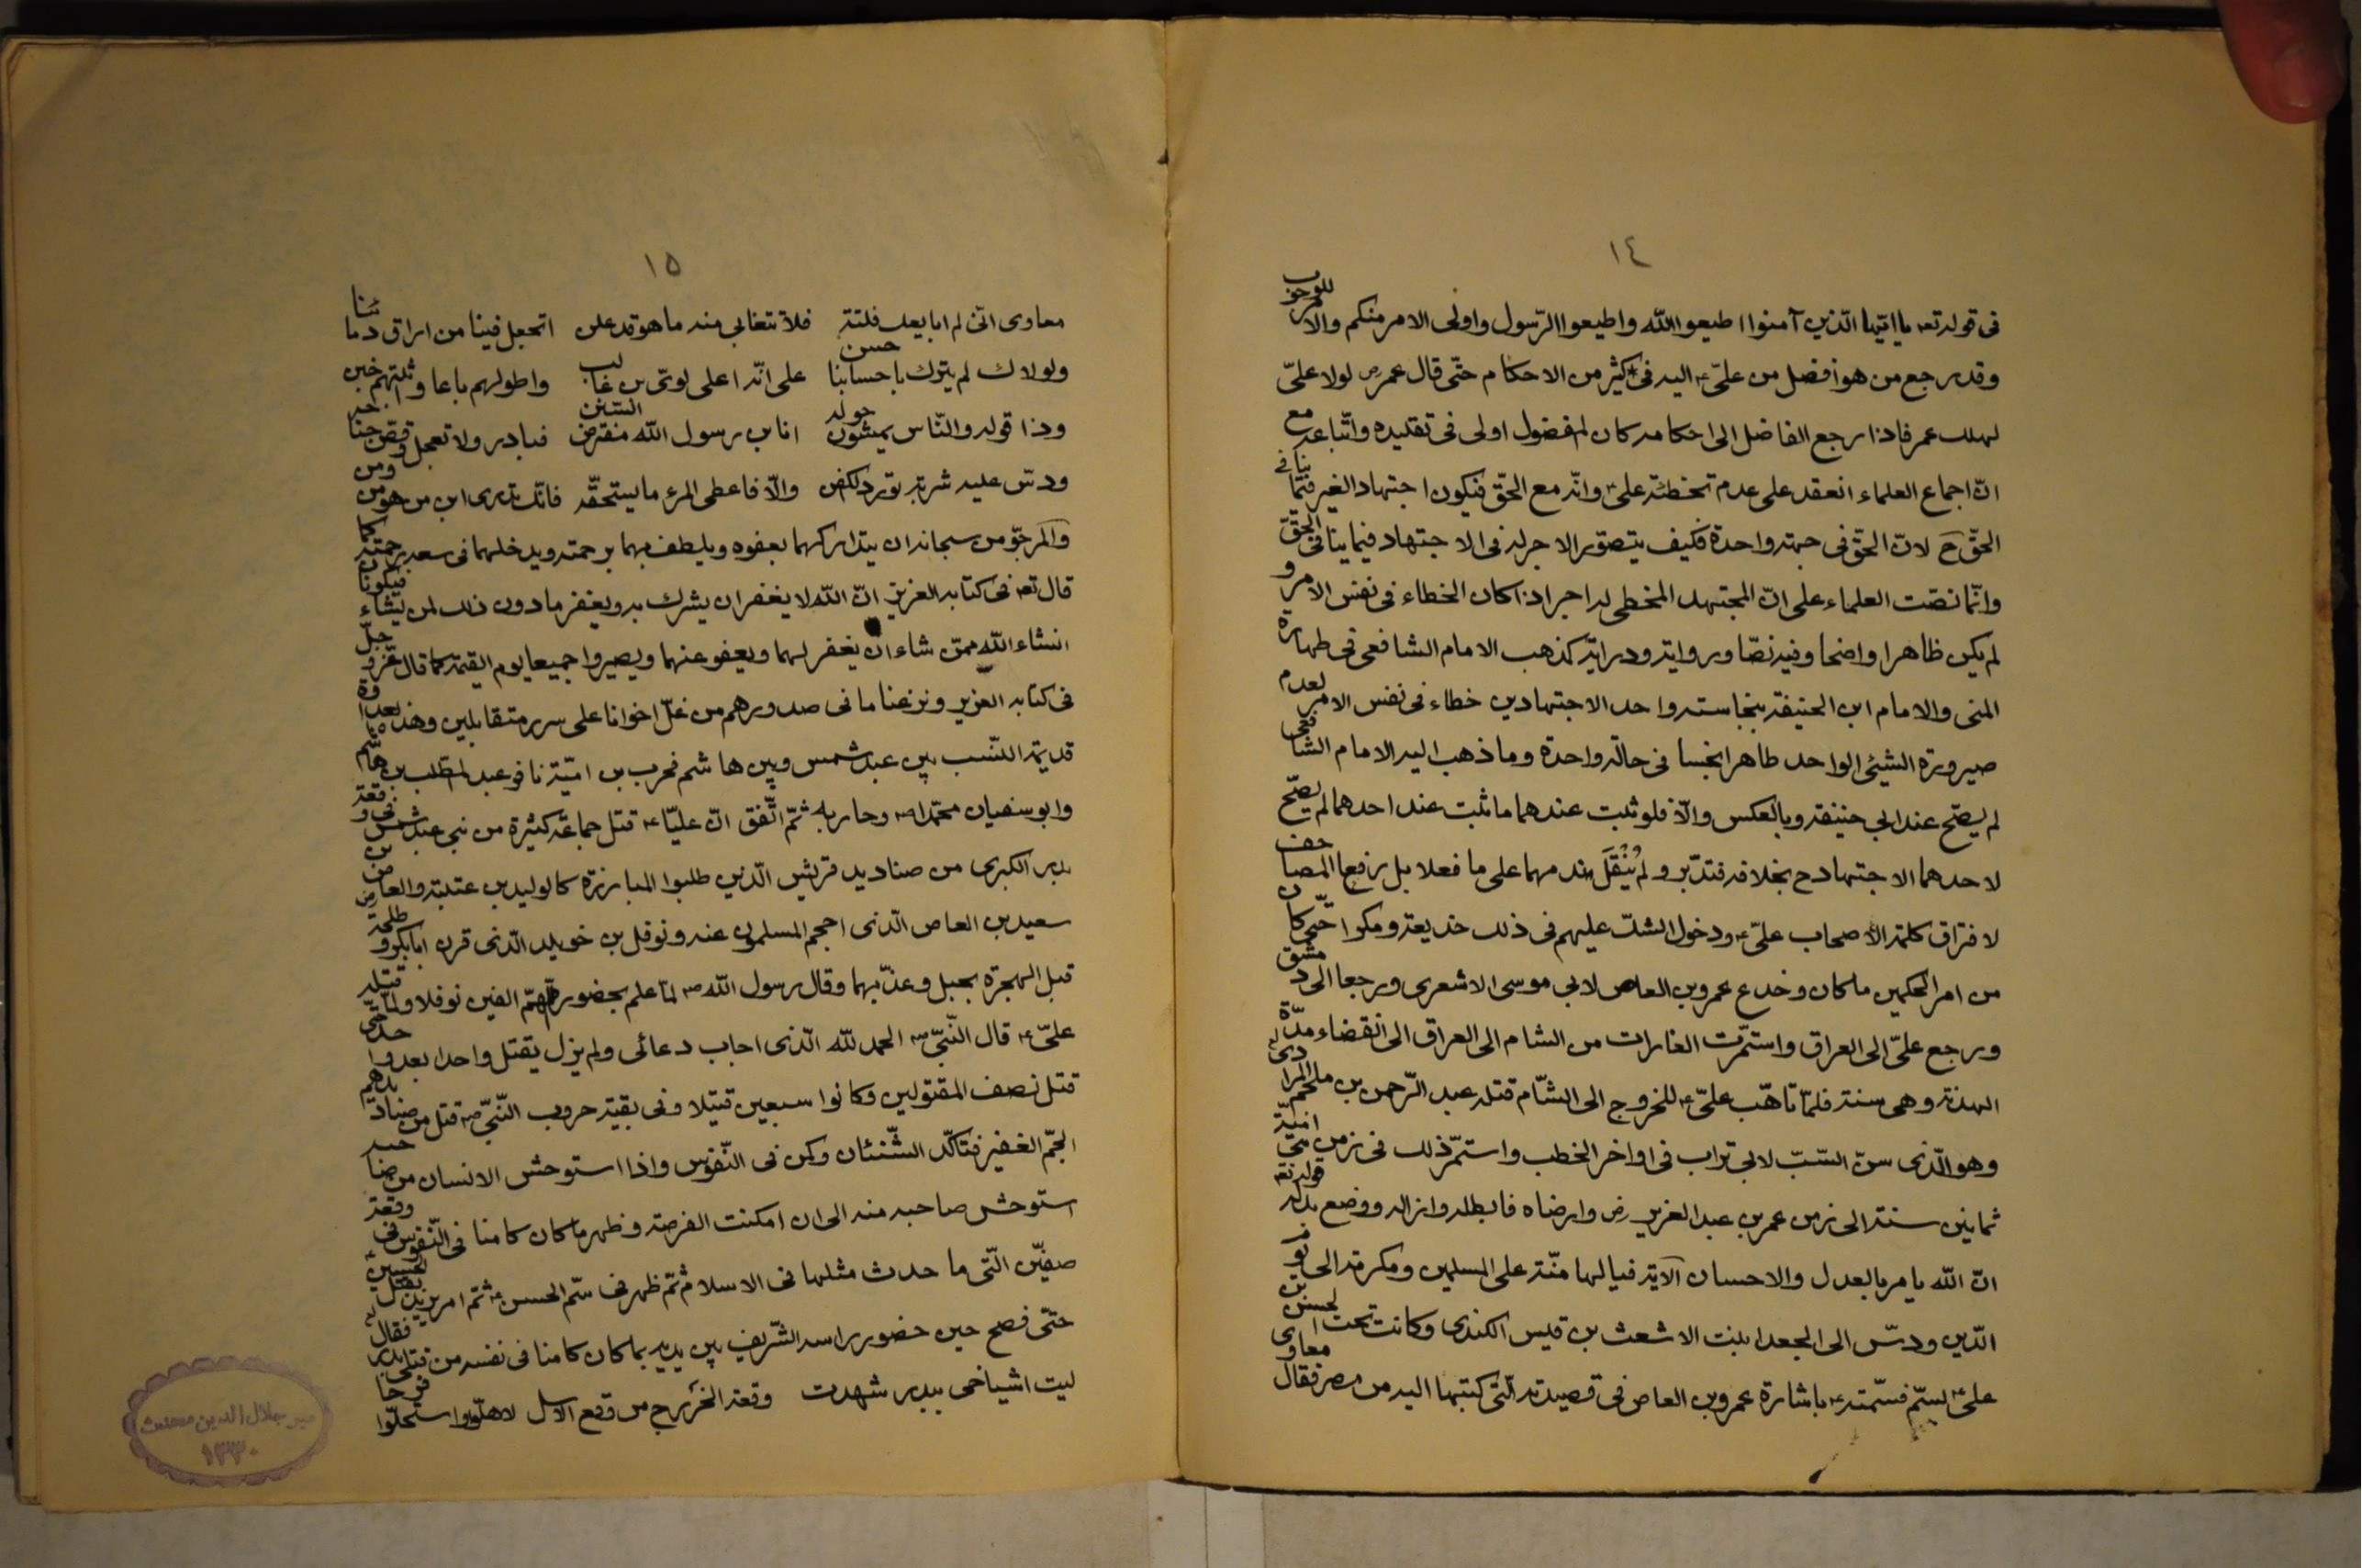 ١٤
فى قوله تعه يا ايّها الّذين آمنوا اطيعوا اللّه واطيعوا الرّسول واولى الامر منكم والامر للوجوب
وقد رجع من هو افضل من علىّ ع اليه فى كثير من الاحكام حتّى قال عمر رض لولا علىّ
لهلك عمر فاذا رجع الفاضل الى احكامه كان المفضول اولى فى تقليده واتّباعه مع
انّ اجماع العلماء انعقد على عدم تخطئة علىّ ع وانّه مع الحقّ فيكون اجتهاد الغير فيما ينافى
الحقّ ح لانّ الحقّ فى جهته واحدة فكيف يتصوّر الاجر له فى الاجتهاد فيما ينافى الحقّ
وانّما نصّت العلماء على انّ المجتهد المخطى له اجر اذا كان الخطاء فى نفس الامر و
لم يكن ظاهرا واضحا وفيه نصّا ورواية ودراية كذهب الامام الشافعى فى طهارة
المنى والامام ابى الحنيفة بنجاسته واحد الاجتهادين خطاء فى نفس الامر لعدم
صيرورة الشيئى الواحد طاهرا نجسا فى حالة واحدة وما ذهب اليه الامام الشافعى
لم يصحّ عند ابى حنيفة وبالعكس والّا فلو ثبت عندهما ما ثبت عند احدهما لم يصحّ
لاحدهما الاجتهاد ح بخلافه فتدبّر ولم يُنْقَل ندمهما على ما فعلا بل رفعا المصاحف
لافتراق كلمة الاصحاب علىّ ع ودخول الشكّ عليهم فى ذلك خديعة ومكرا حتّى كان
من امر الحكمين ما كان وخدع عمرو بن العاص لابى موسى الاشعرى ورجعا الى دمشق
ورجع علىّ الى العراق واستمرّت الغارات من الشام الى العراق الى انقضاء مدّة
الهدنة وهى سنة فلمّا تاهّب علىّ ع للخروج الى الشّام قتله عبد الرّحمن بن ملجم المرادى
وهو الّذى سنّ السّبّ لابى تراب فى اواخر الخطب واستمرّ ذلك فى زمن بنى اميّة
ثمانين سنة الى زمن عمر بن عبد العزيز رض وارضاه فابطله وازاله ووضع بدله قوله تعه
انّ اللّه يامر بالعدل والاحسان الآية فيا لها منّة على المسلمين ومكرمة الى يوم
الدّين ودسّ الى الجعدا بنت الاشعث بن قيس الكندى وكانت تحت الحسن بن
علىّ ع السمّ فسّمته ع باشارة عمرو بن العاص فى قصيدته الّتى كتبها اليه من مصر فقال معاوى
١٥
معاوى انّى لم ابايعك فلتة فلا تتغابى منه ما هو قد علن اتجعل فينا من اراق دمائنا
ولولاك لم يترك باحسابنا حسن على انّه اعلى لوىّ بن غالب واطولهم باعا
وذا قوله والنّاس يمشون حوله انا بن رسول اللّه مفترض السّنن فبادر ولا تعجل
ودسّ عليه شربة والّا فاعطى المرء ما يستحقّه فانّك تدرى ابن من هو ومن
والمرجوّ من سبحانه ان يتداركهما بعفوه ويلطف بهما برحمته ويدخلهما فى سعه برحمته كما
قال تعه فى كتابه العزيز انّ اللّه لا يغفر ان يشرك به ويغفر ما دون ذلك لمن يشاء فيكونان
انشاء اللّه ممّن شاء ان يغفر لهما ويعفو عنهما ويصيروا جميعا يوم القيمة كما قال عزّ وجلّ
فى كتابه العزيز ونزعنا ما فى صدورهم من غلّ اخوانا على سرر متقابلين وهذه العداوة
قديمة النّسب بين عبد شمس وبين هاشم فحرب بن اميّة نافر عبد المطّلب بن هاشم
وابو سفيان محمّدا ص وحاربه ثمّ اتّفق انّ عليّا ع قتل جماعة كثيرة من بنى عبد شمس فى وقعة
بدر الكبرى من صناديد قريش الّذين طلبوا المبارزة كالوليد بن عتبة والعاص بن
سعيد بن العاص الّذى احجم المسلمون عنه ونوفل بن خويلد الّذى قرن ابا بكر وطلحة
قبل الهجرة بحبل وعذّبهما وقال رسول اللّه ص لمّا علم بحضوره اللّهمّ اكفنى نوفلا ولمّا قتله
علىّ ع قال النّبىّ ص الحمد للّه الّذى اجاب دعائى ولم يزل يقتل واحدا بعد واحد حتّى
قتل نصف المقتولين وكانوا سبعين قتيلا وفى بقيّة حروب النّبىّ ص قتل من صناديدهم
الجمّ الغفير فتاكّد الشّنئان وكمن فى النّفوس واذا استوحش الانسان من صاحبه
استوحش صاحبه منه الى ان امكنت الفرصة وظهر ما كان كامنا فى النّفوس فى وقعة
صفّين الّتى ما حدث مثلها فى الاسلام ثمّ ظهر فى سمّ الحسن ع ثمّ امر يزيد بقتل الحسين ع
حتّى فصح حين حضور راسه الشّريف بين يديه بما كان كامنا فى نفسه من قتلى بدر فقال
ليت اشياخى ببدر شهدت وقعة الخزرج من وقع الاسل لاهلّوا واستهلّوا فرحا
مير جلال الدين محدث
١٣٣٠